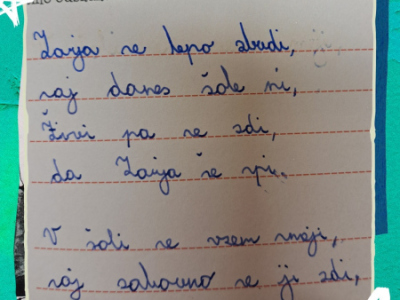 Zarja se lepo zbudi,
saj danes šole ni,
Živi pa se zdi,
da Zarja še spi.
V šoli se vsem smeji,
saj zabavno se ji zdi,